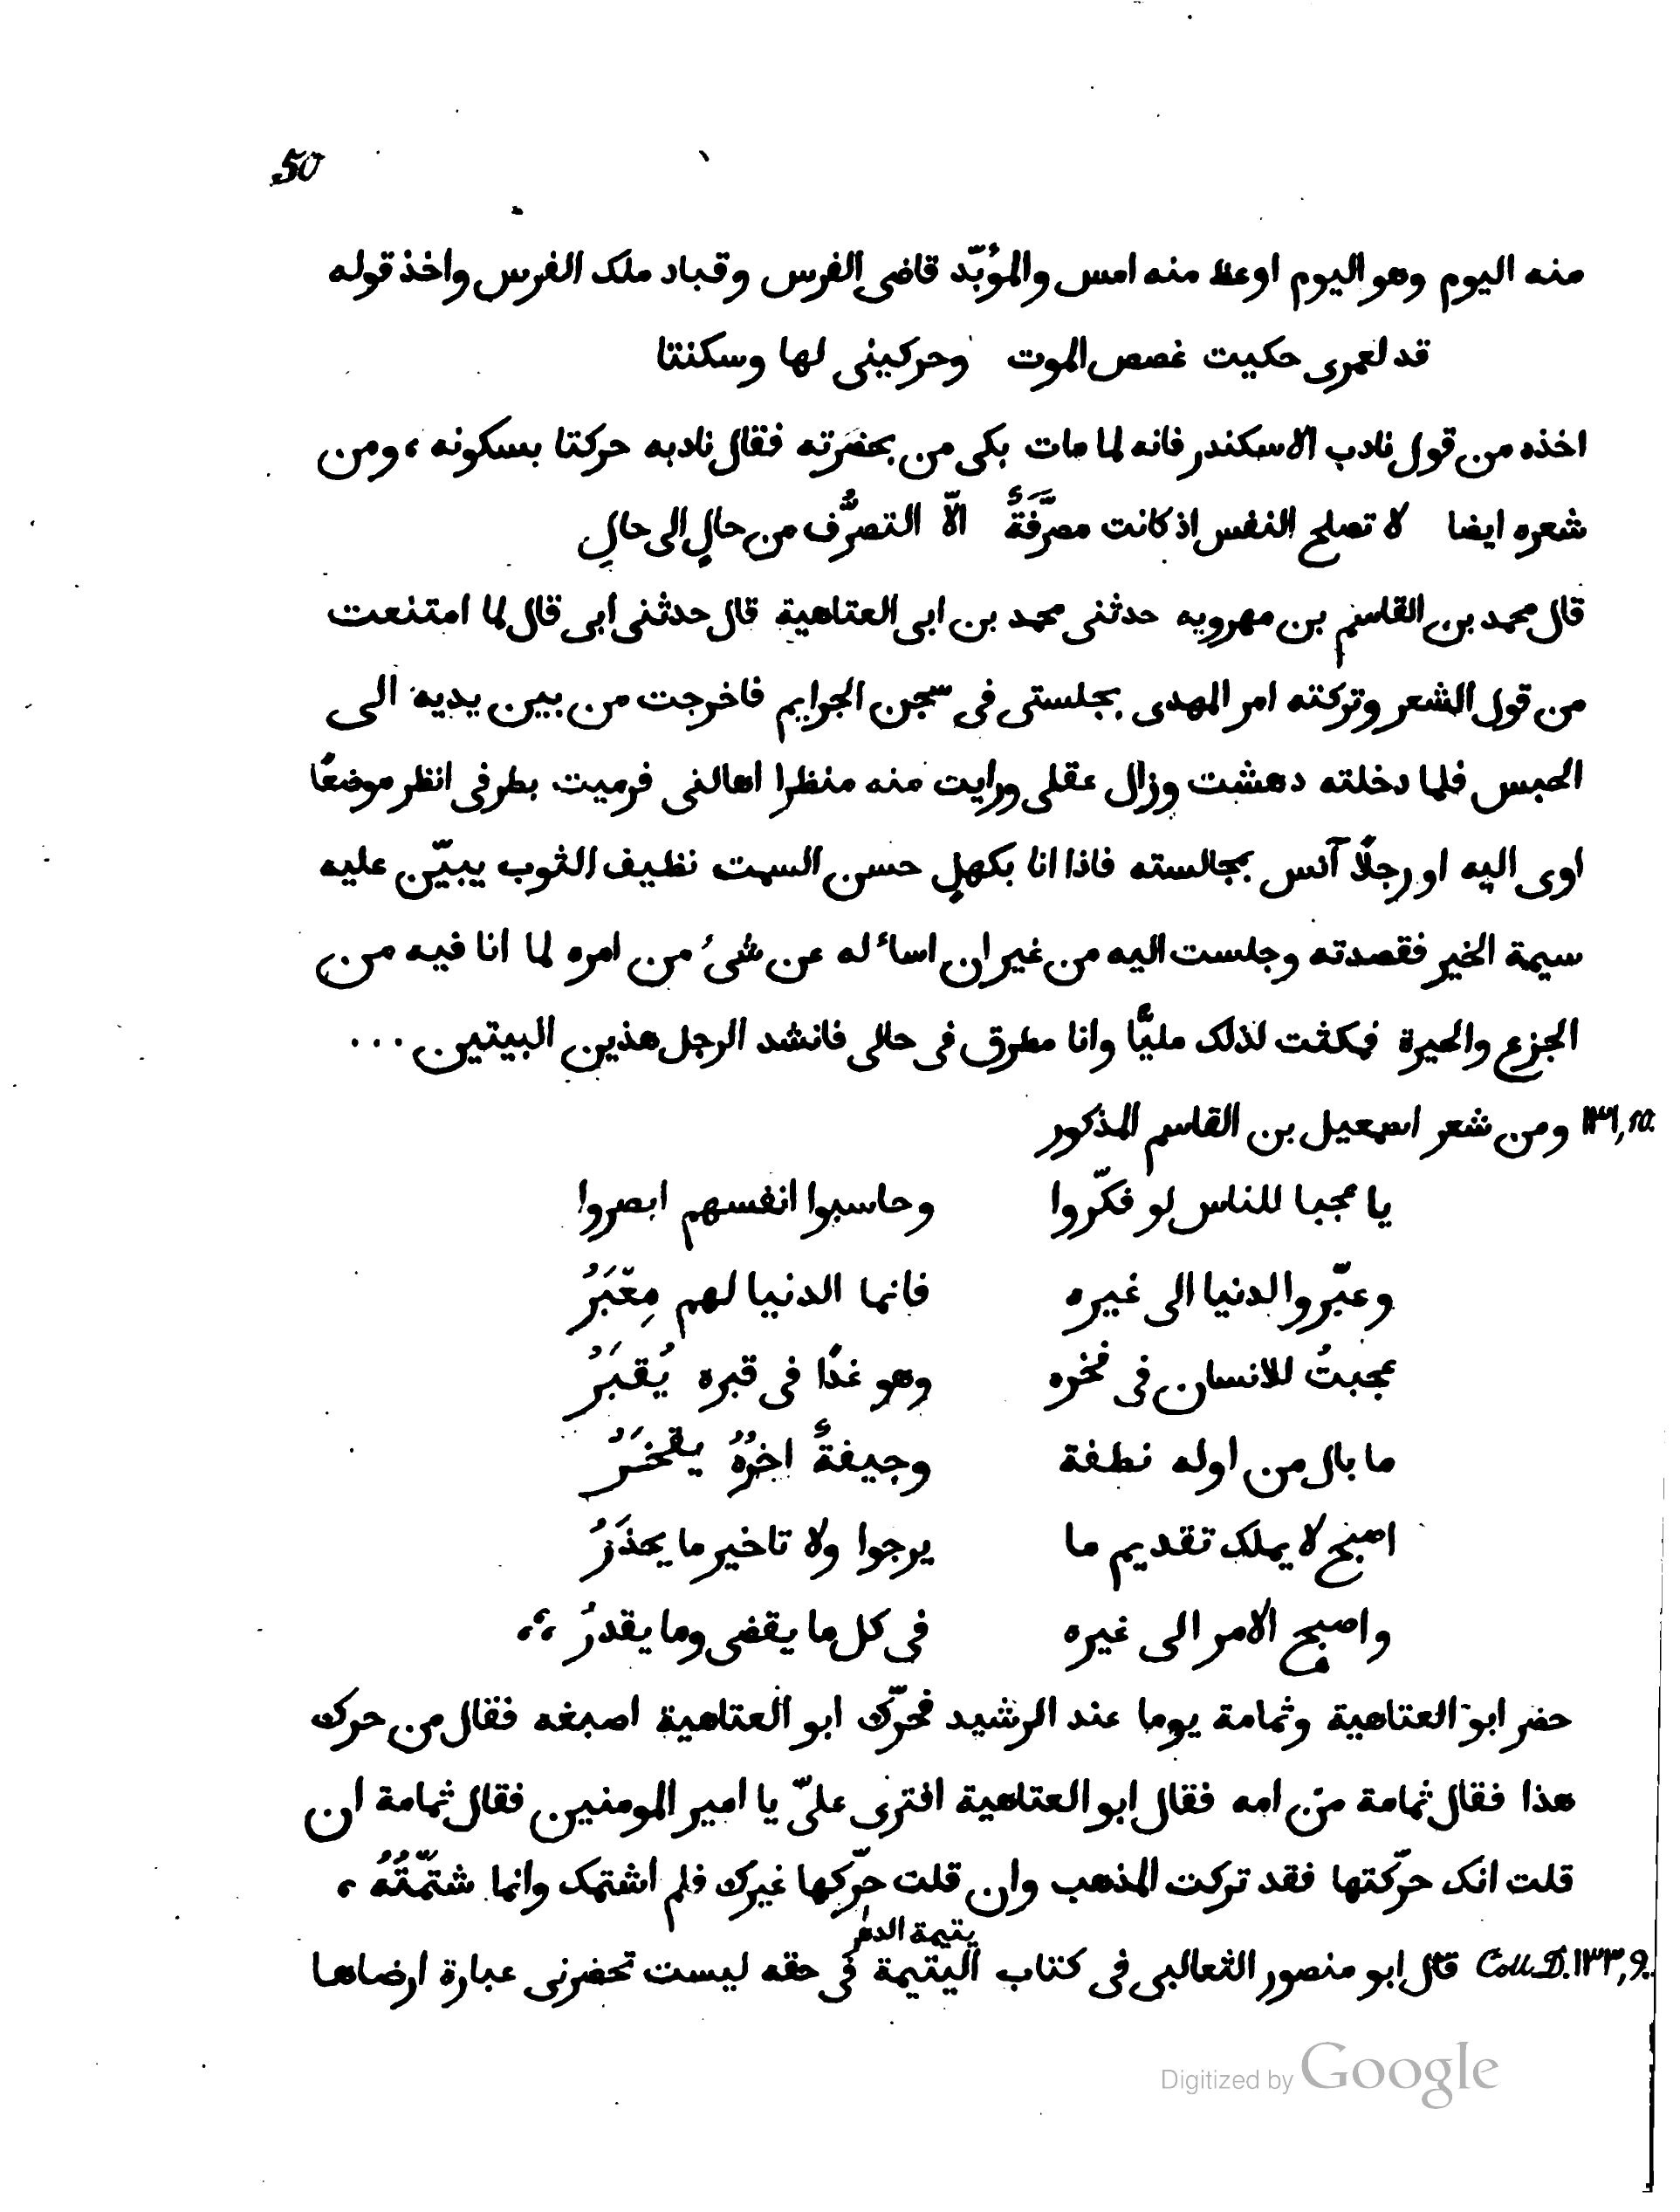 50
منه اليوم وهو اليوم اوعظ منه امس والمؤبّد قاضى الفرس وقباد ملك الفرس واخذ قوله
قد لعمرى حكيت غصص الموت وحركينى لها وسكنتا
اخذه من قول نادب الاسكندر فانه لما مات بكى من بحضرته فقال نادبه حركتا بسكونه ، ومن
شعره ايضا لا تصلح النفس اذ كانت مصرَّفةً الّا التصرُّف من حالٍ الى حالِ
قال محمد بن القاسم بن مهرويه حدثنى محمد بن ابى العتاهية قال حدثنى ابى قال لما امتنعت
من قول الشعر وتركته امر المهدى بجلستى فى سجن الجرايم فاخرجت من بين يديه الى
الحبس فلما دخلته دهشت وزال عقلى ورايت منه منظرا اهالنى فرميت بطرفى انظر موضعًا
اوى اليه او رجلًا آنس بمجالسته فاذا انا بكهلٍ حسن السمت نظيف الثوب يبيّن عليه
سيمة الخير فقصدته وجلست اليه من غير ان اساءله عن شىء من امره لما انا فيه من
الجزع والحيرة فمكثت لذلك مليًّا وانا مطرق فى حالى فانشد الرجل هذين البيتين ...
١٣٦,10. ومن شعر اسمعيل بن القاسم المذكور
يا عجبا للناس لو فكّروا وحاسبوا انفسهم ابصروا
وعبّروا لدنيا الى غيره فانما الدنيا لهم مِعْبَرُ
عجبتُ للانسان فى فخره وهو غدًا فى قبره يُقبَرُ
ما بال من اوله نطفة وجيفةٌ اخرُهُ يفخَرُ
اصبح لا يملك تقديم ما يرجوا ولا تاخير ما يحذَرُ
واصبح الامر الى غيره فى كل ما يقضى وما يقدرُ ،،
حضر ابو العتاهية وثمامة يوما عند الرشيد فحرّك ابو العتاهية اصبغه فقال من حرك
هذا فقال ثمامة من امه فقال ابو العتاهية افترى علىّ يا امير المومنين فقال ثمامة ان
قلت انك حرّكتها فقد تركت المذهب وان قلت حرّكها غيرك فلم اشتمك وانما شتمّتُهُ ،
يتيمة الدهر
Coll. D. ١٣٣,9. قال ابو منصور الثعالبى فى كتاب اليتيمة فى حقه ليست تحضرنى عبارة ارضاها
Digitized by Google